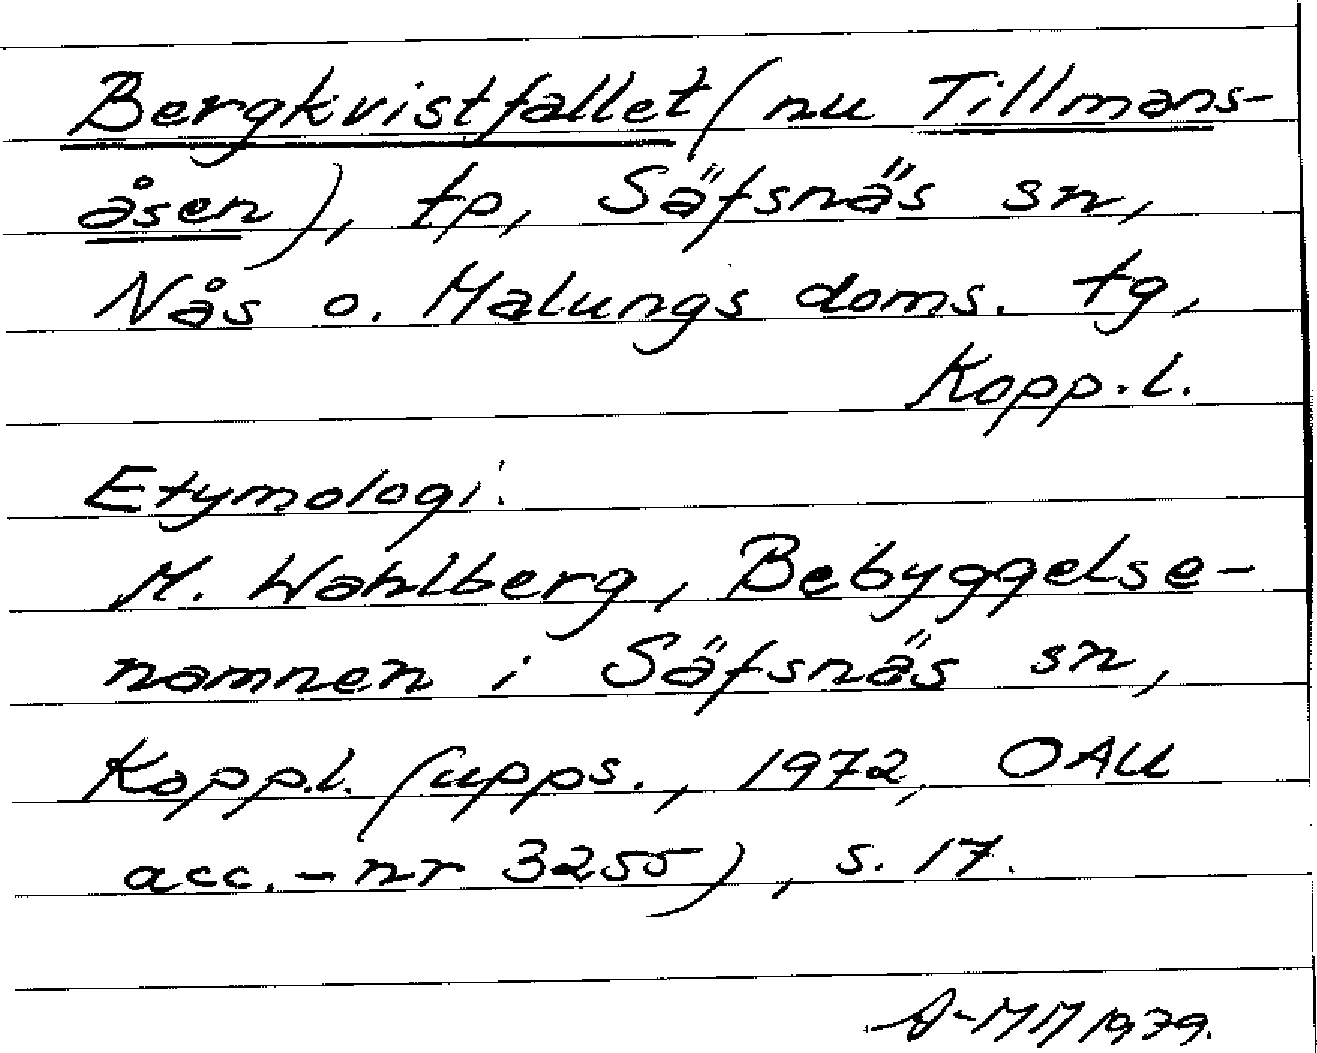 Bergkvistfallet (nu Tillmans-
åsen), tp, Säfsnäs sn,
Nås o. Malungs doms. tg,
Kopp.l.
Etymologi:
M. Wahlberg, Bebyggelse-
namnen i Säfsnäs sn,
Kopp.l. (upps., 1972, OAU
acc.-nr 3255), s. 17.
A-MM 1979.